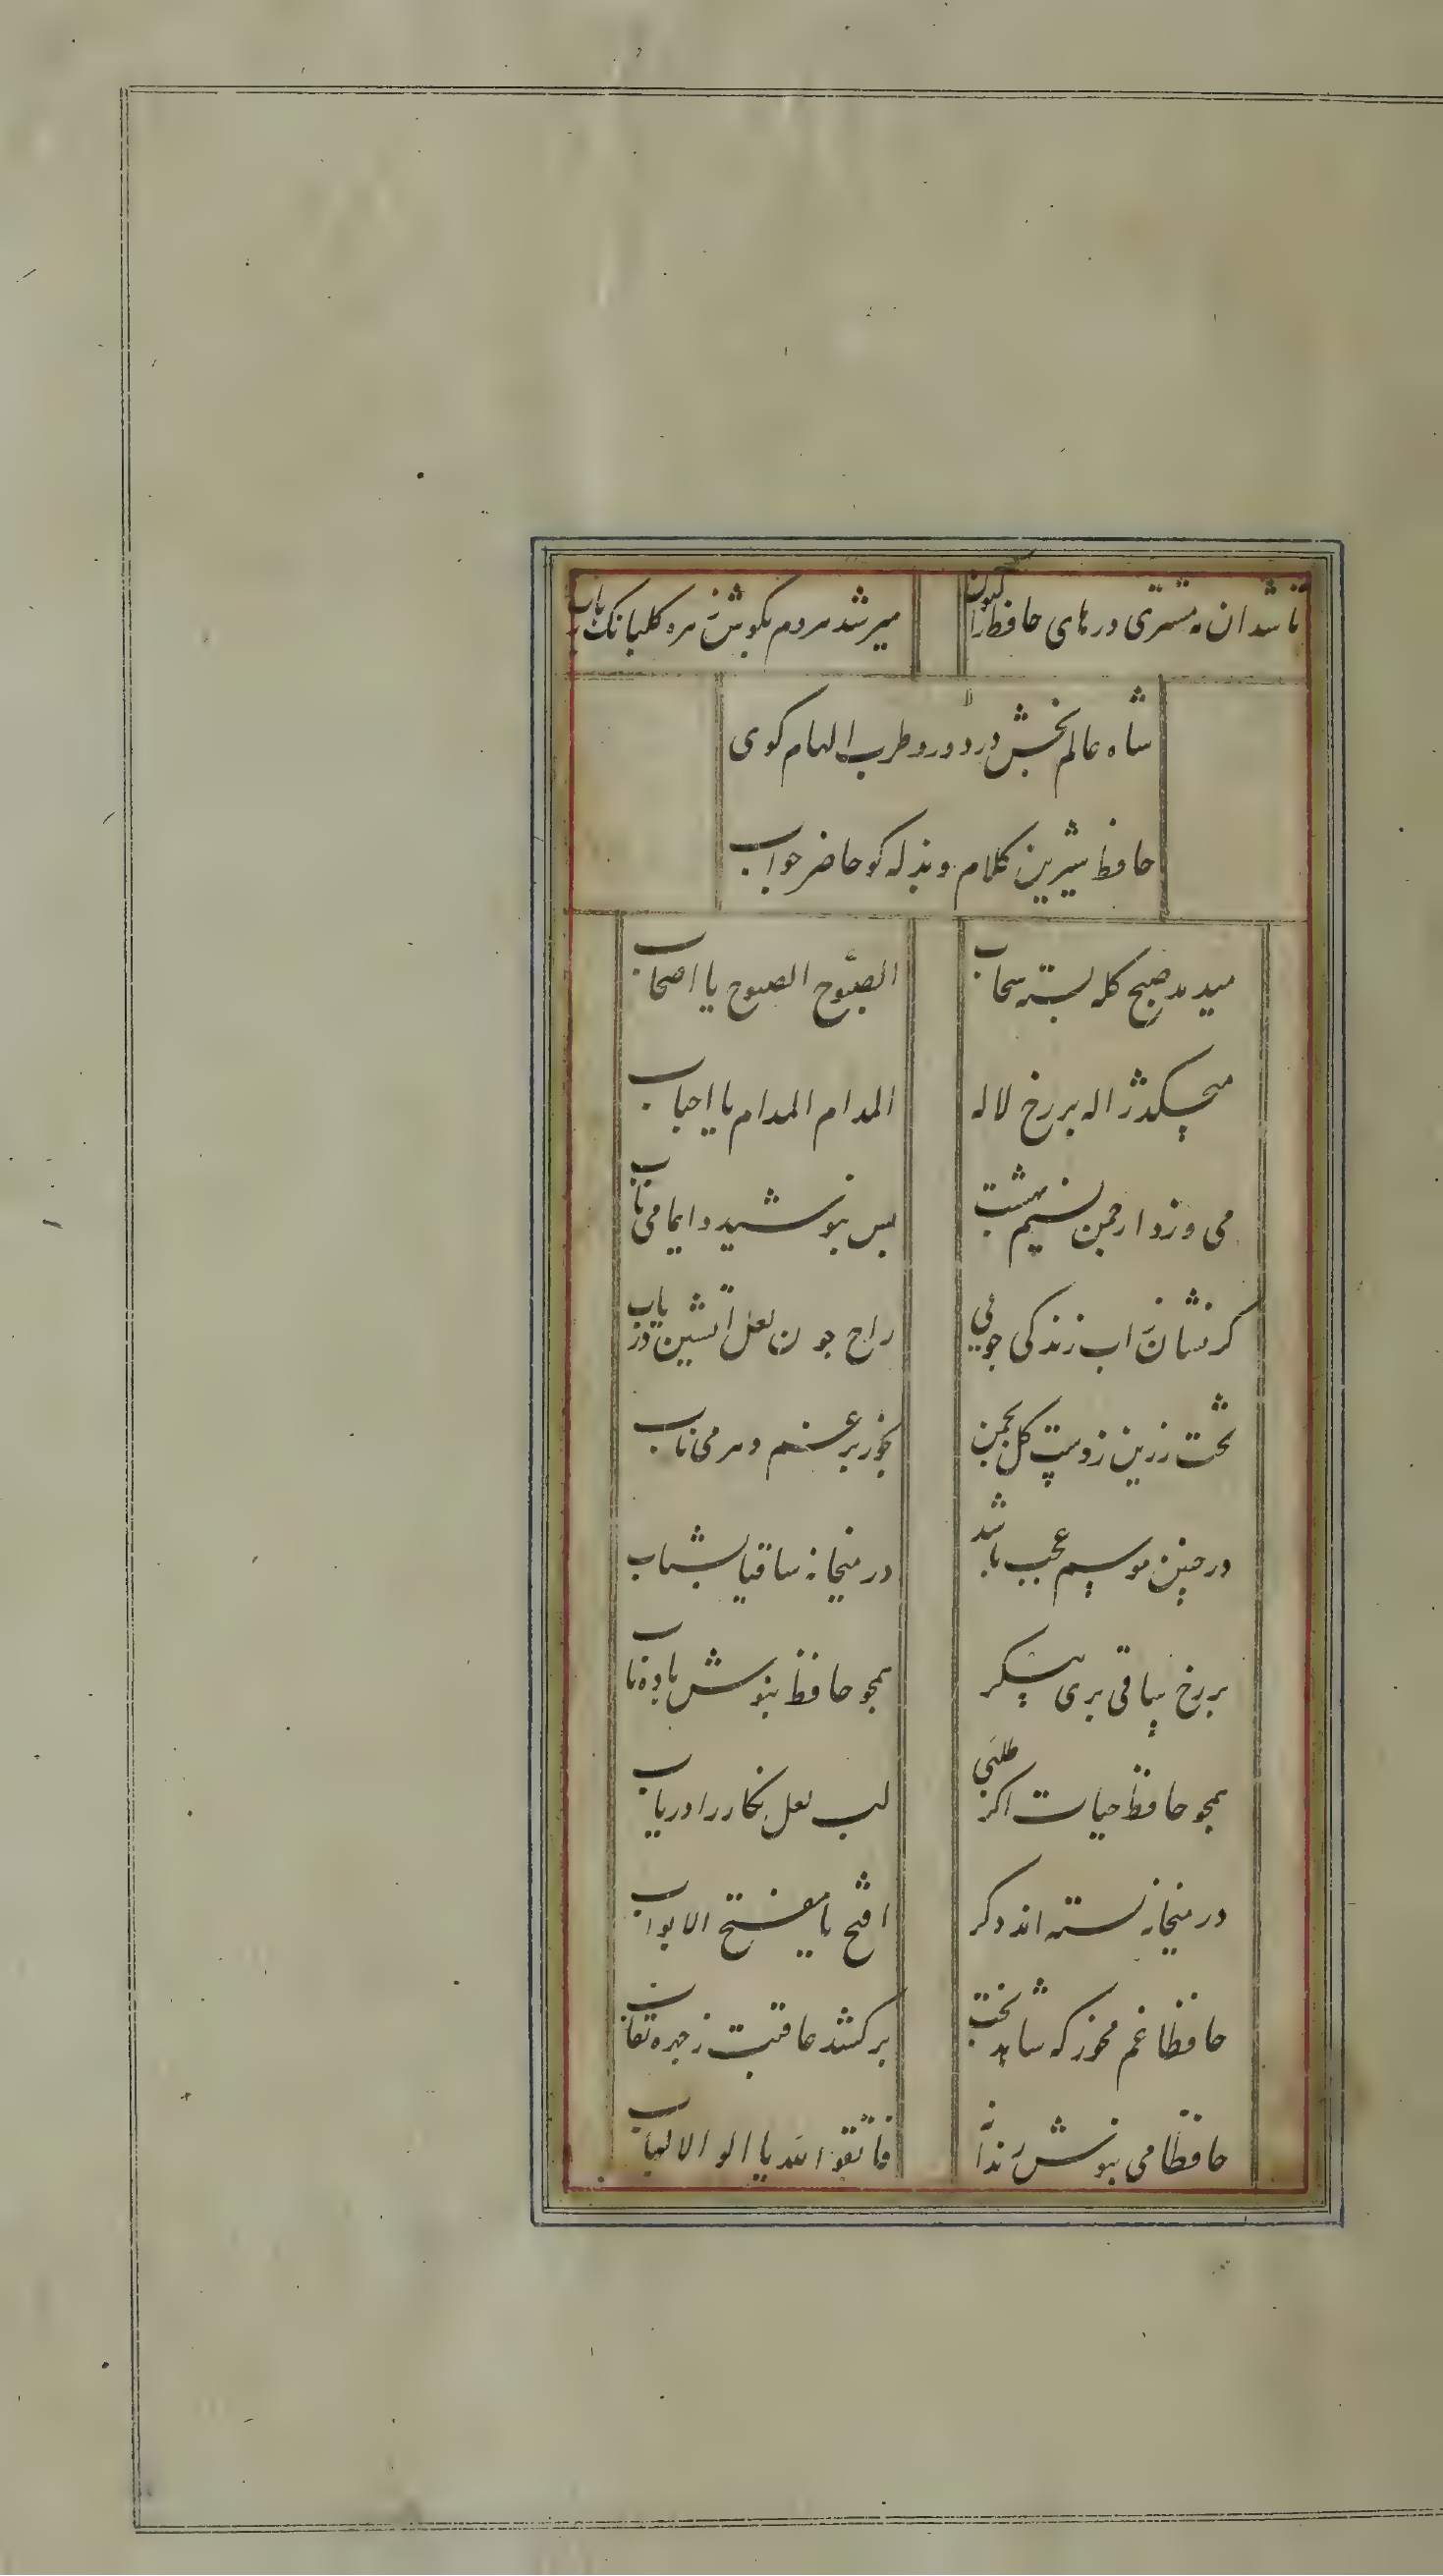 تا شد ان مه مشتری درهای حافظ را کنون
میرسد هر دم بگوش زهره کلبانک رباب
شاه عالم بخش در دور و طرب الهام کوی
حافظ شیرین کلام و بذله کو حاضر جواب
میدمد صبح کله بسته سحاب
الصبوح الصبوح یا اصحاب
میچکد ژاله بر رخ لاله
المدام المدام یا احباب
می وزد از چمن نسیم بهشت
بس بنوشید دایما می ناب
کر نشان ز اب زندکی جوئی
راح جون لعل اتشین دریاب
تخت زرین زدست کل بچمن
بخور بر غم دهر می ناب
در چنین موسم عجب باشد
در میخانه ساقیا بشتاب
بر رخ ساقی بری پیکر
همجو حافظ بنوش باده ناب
همجو حافظ حیات اکر طلبی
لب لعل نکار را دریاب
در میخانه بسته اند دکر
افتح یا مفتح الابواب
حافظا غم مخور که شاهد بخت
برکشد عاقبت زجهره نقاب
حافظا می بنوش رندانه
فاتقوا الله یا الو الالباب